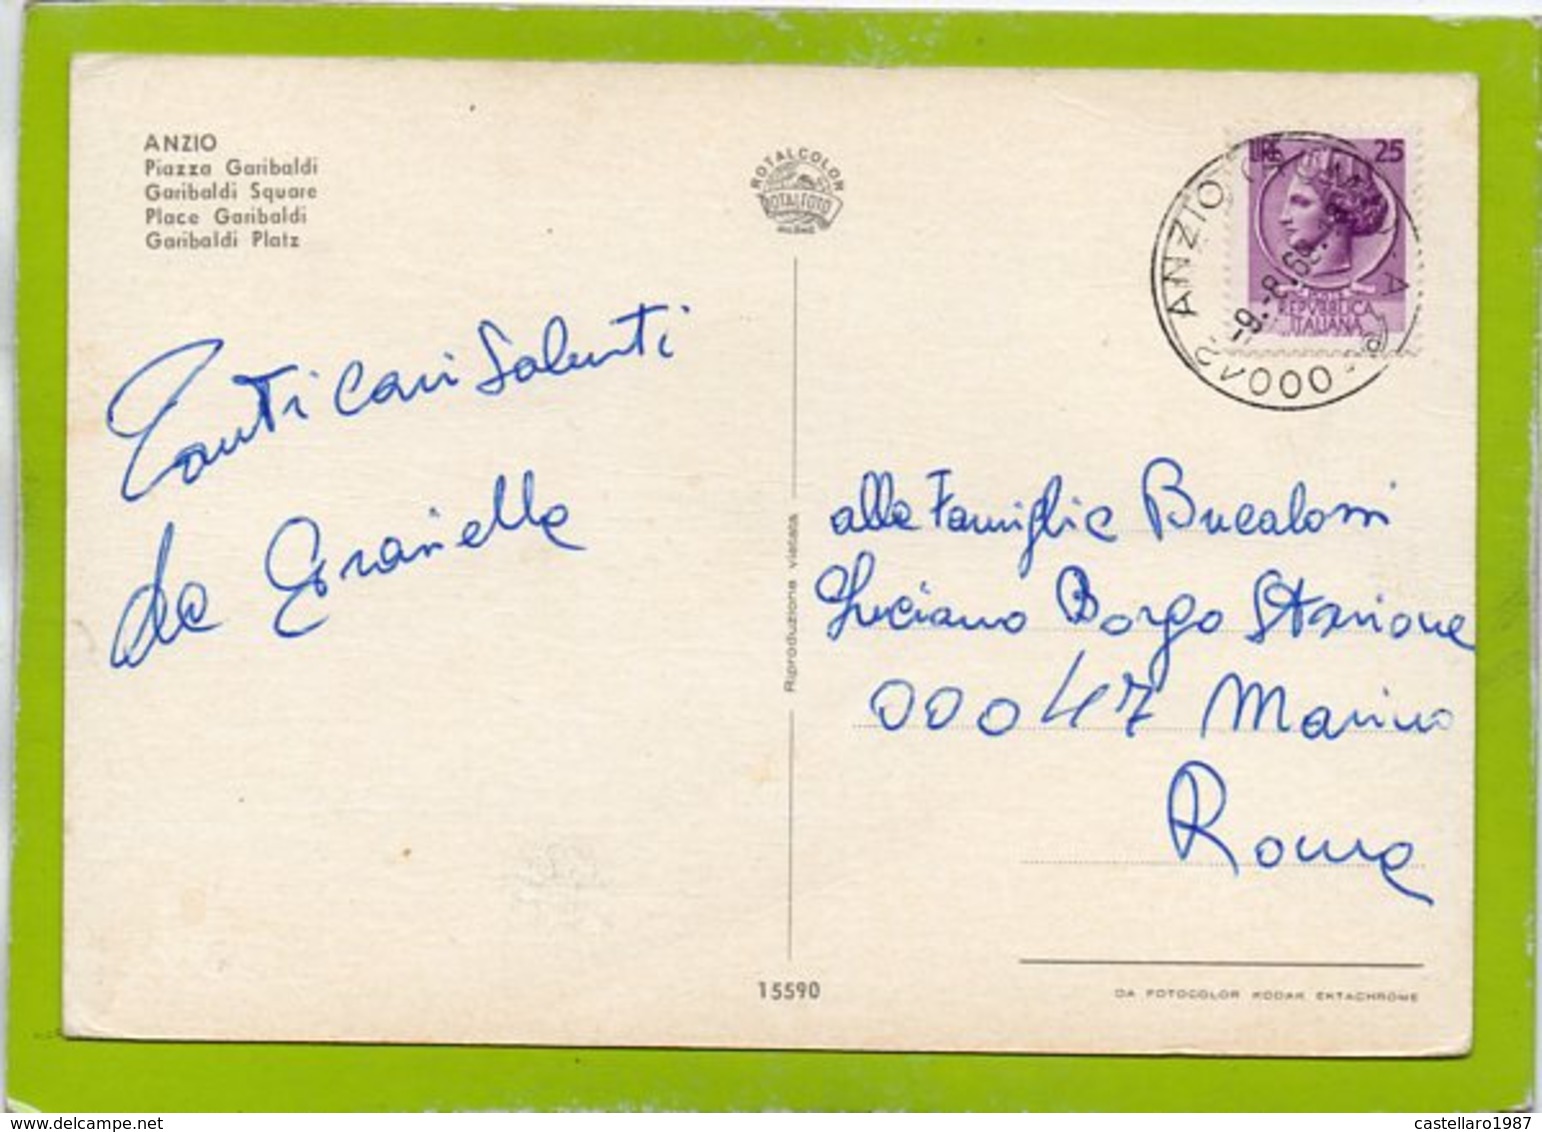 ANZIO
Piazza Garibaldi
Garibaldi Square
Place Garibaldi
Garibaldi Platz
ROTALCOLOR
ROTALFOTO
MILANO
LIRE 25
REPVBBLICA
ITALIANA
ANZIO
-9.-8.68
000
Tanti cari Saluti
da Graziella
alla Famiglia Bucalossi
Luciano Borgo Stazione
00047 Marino
Roma
Riproduzione vietata
15590
DA FOTOCOLOR KODAK EKTACHROME
delcampe.net
castellaro1987